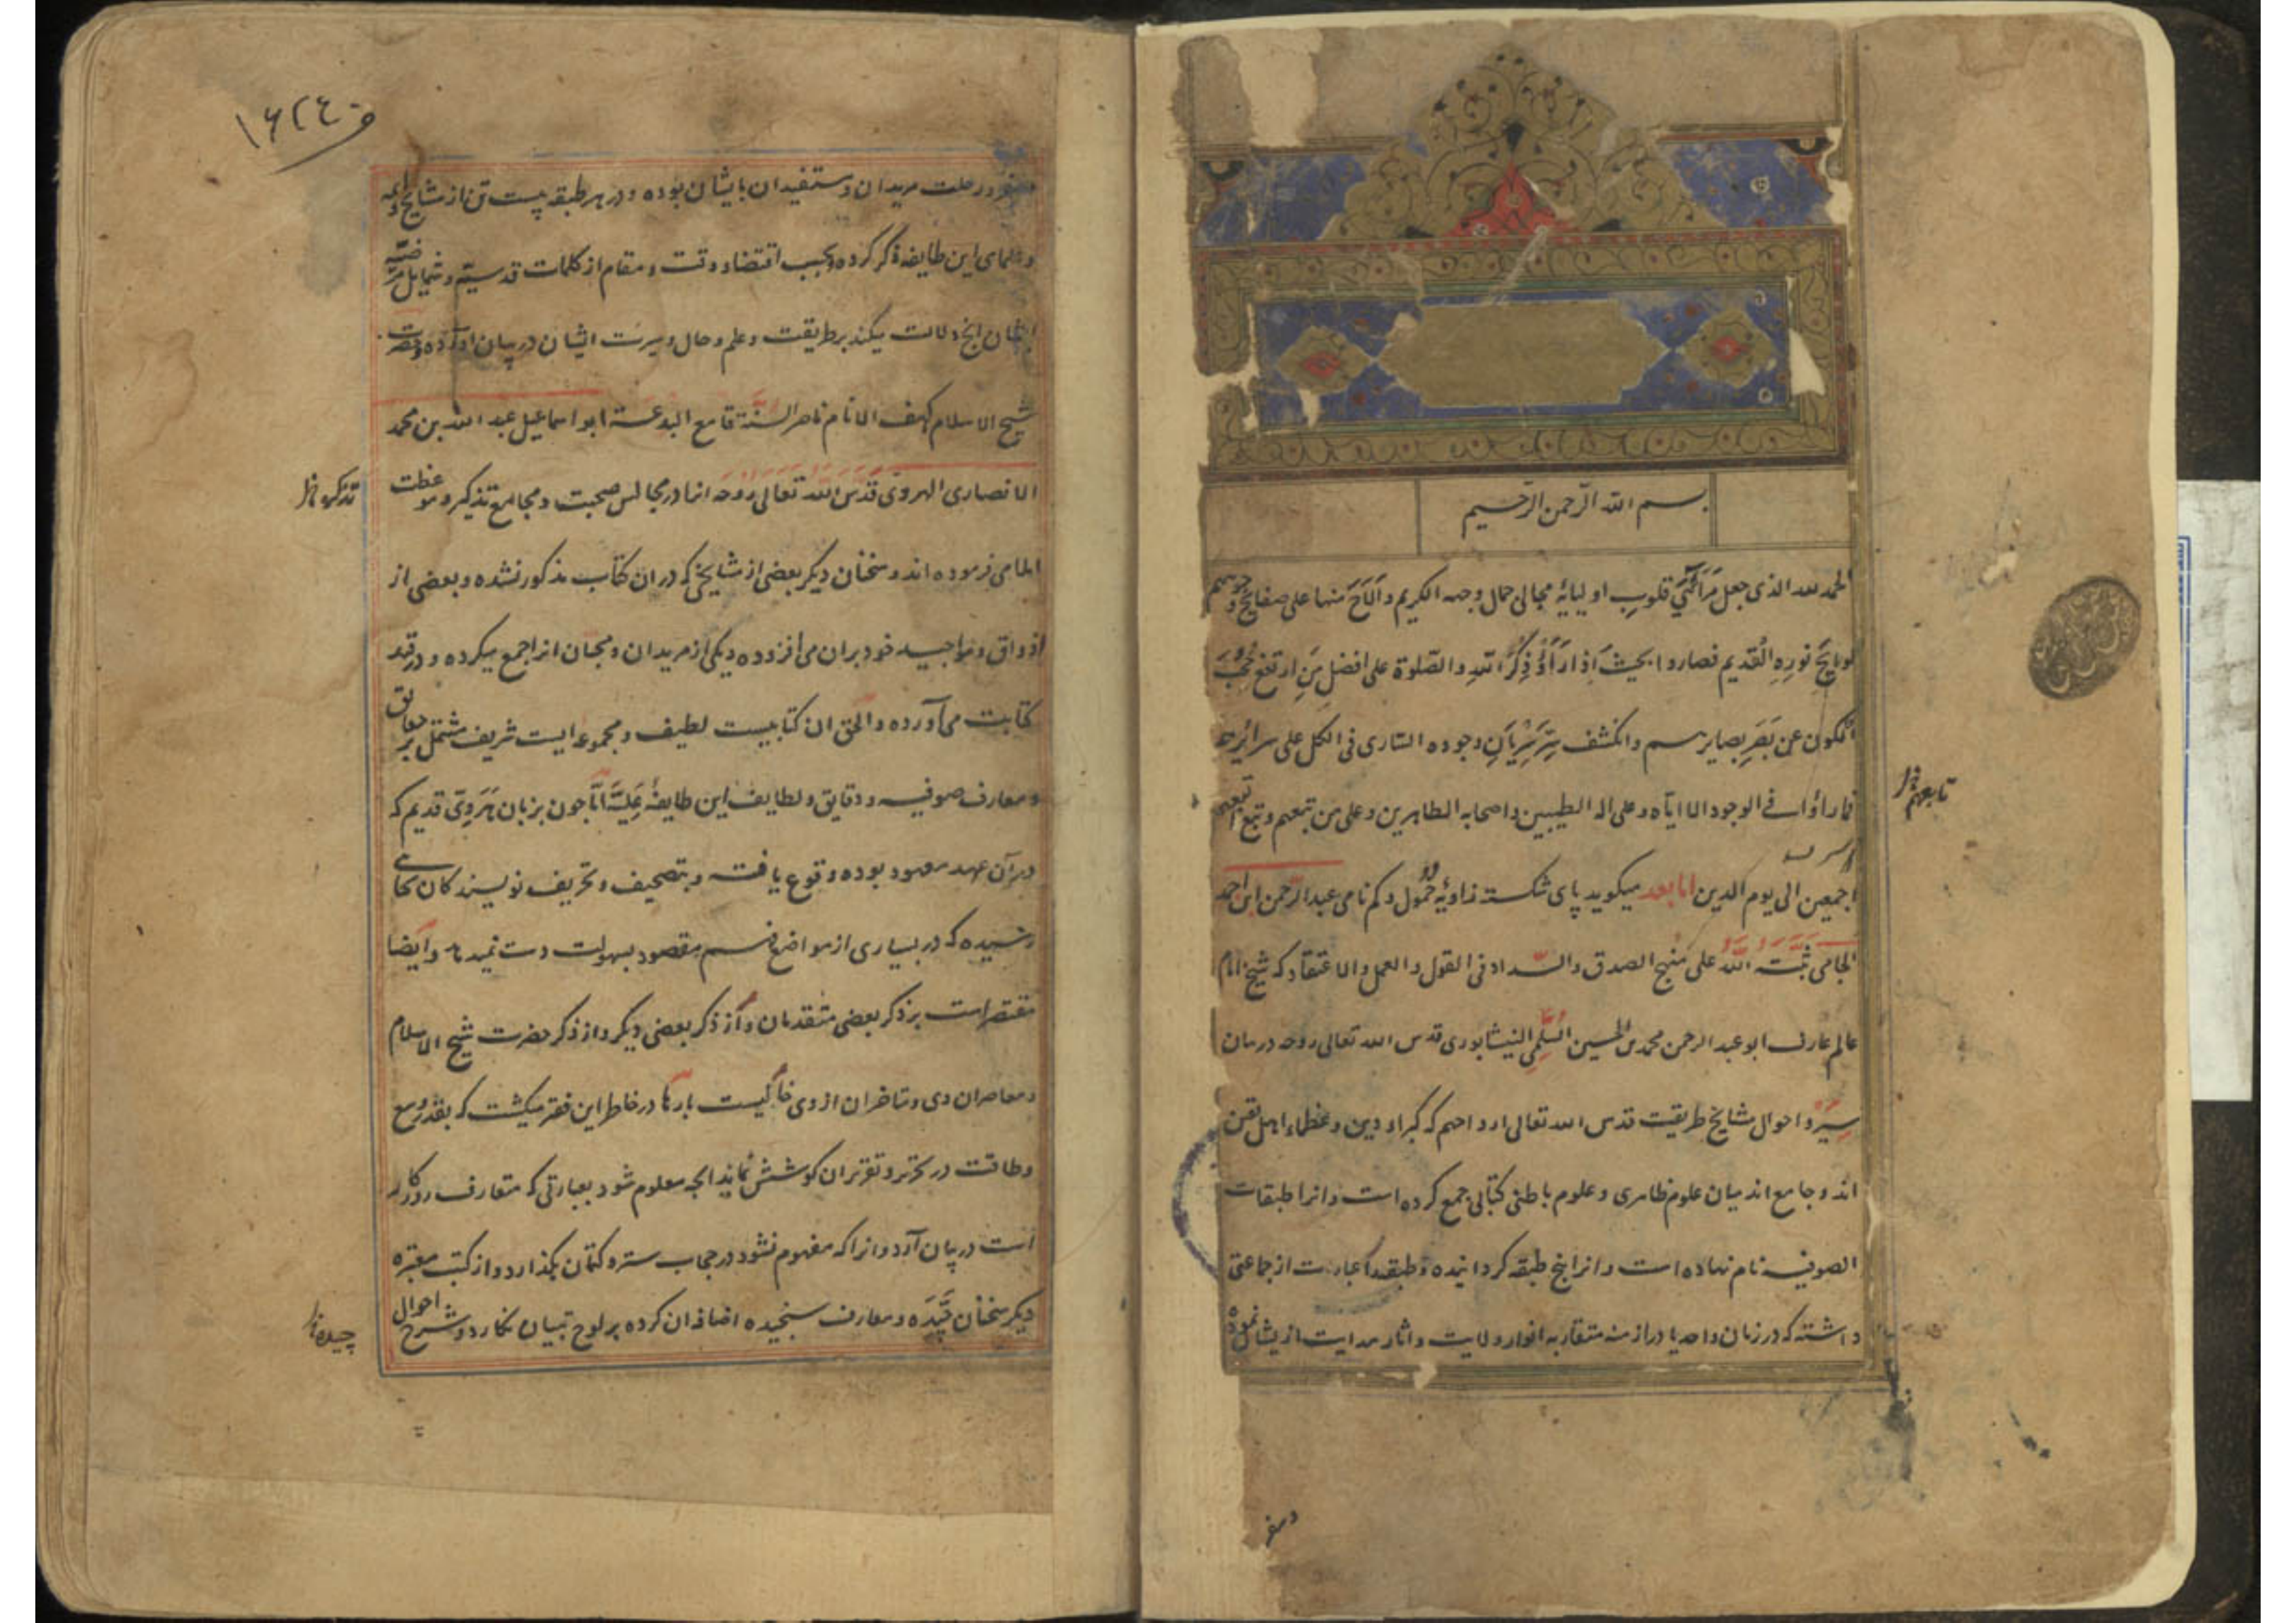 بسم الله الرحمن الرحیم
الحمد لله الذی جعل مَرَائِیَ قلوبِ اولیایهٔ مجالی جمال وجهه الکریم و اَلَاحَ منها علی صفایح وجوههم
لوایحَ نورِهِ القدیم فصاروا بحیثُ اذا رَاَوْا ذُکِرَ اللّه والصّلوة علی افضل مَنِ ارتفع حُجُبَ
الکون عن بَصَرِ بصایرهم وانکشف سِرّ سَرَیَانِ وجوده السّاری فی الکل علی سرائرهم
فما رأوا فی الوجود الا ایّاه وعلی اله الطیبین واصحابه الطاهرین وعلی من تبعهم وتبع تبعهم
تابعهم
اجمعین الی یوم الدین اما بعد میکوید پای شکسته زاویهٔ خُمول وکم نامی عبد الرّحمن ابن احمد
الجامی ثبَّتَهُ اللّه علی منهج الصدق والسّداد فی القول والعمل والاعتقاد که شیخ امام
عالم عارف ابو عبد الرحمن محمد بن الحسین السُّلَمِی النیشابوری قدس الله تعالی روحه در بیان
سِیَر و احوال مشایخ طریقت قدس الله تعالی ارواحهم که کبراء دین وعظماء اهل یقین
اند وجامع اند میان علوم ظاهری و علوم باطنی کتابی جمع کرده است و انرا طبقات
الصوفیه نام نهاده است و انرا پنج طبقه کردانیده وطبقه را عبارت از جماعتی
داشته که در زمان واحد یا در ازمنه متقاربه انوار ولایت و اثار هدایت ازیشان
وسفر
۱۶۲۴
وسفر و رحلت مریدان ومستفیدان بایشان بوده و در هر طبقه بیست تن از مشایخ وائمه
وعلمای این طایفه ذکر کرده وبحسب اقتضاء وقت ومقام از کلمات قدسیّه وشمایل مرضیّه
ایشان انچ دلالت میکند بر طریقت وعلم وحال وسیرت ایشان در بیان اورده وحضرت
شیخ الاسلام کهف الانام ناصر السنّة قامع البدعة ابو اسماعیل عبد الله بن محمد
الانصاری الهروی قَدَّسَ اللّه تعالی روحه انرا در مجالس صحبت ومجامع تذکیر وموعظت
املا می فرموده اند وسخنان دیکر بعضی از مشایخ که در ان کتاب مذکور نشده وبعضی از
اذواق ومواجید خود بران می افزوده ویکی از مریدان ومحبان انرا جمع میکرده و در قید
کتابت می آورده والحق ان کتابیست لطیف ومجموعه ایست شریف مشتمل بر حقایق
ومعارف صوفیه ودقایق ولطایف این طایفهٔ عَلِیَّه امّا چون بزبان هَرَوِیّ قدیم که
در آن عهد معهود بوده وقوع یافته وبتصحیف وتحریف نویسندکان بجائی
رسیده که در بسیاری از مواضع فهم مقصود بسهولت دست نمیدهد وایضا
مقتصر است بر ذکر بعضی متقدمان و از ذکر بعضی دیکر و از ذکر حضرت شیخ الاسلام
ومعاصران وی ومتاخران از وی خالیست بارها در خاطر این فقیر میکشت که بقدر وسع
وطاقت در تحریر وتقریر ان کوشش نماید انچه معلوم شود بعبارتی که متعارف روزکار
است در بیان آرد وانرا که مفهوم نشود در حجاب ستر وکتمان بکذارد واز کتب معتبره
دیکر سخنان جیّدَه ومعارف سنجیده اضافه ان کرده بر لوح تبیان نکارد وشرح احوال